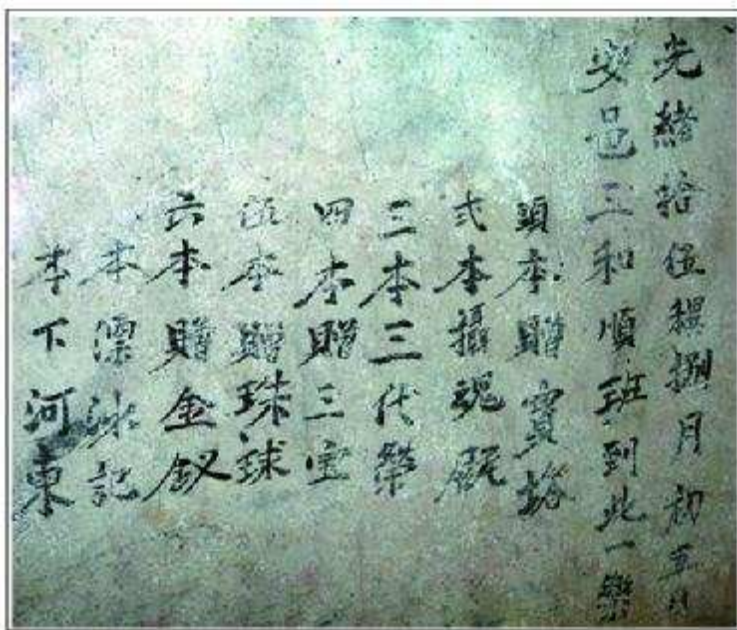 光緒拾伍稞捌月初五日
安邑三和順班到此一樂
頭本贈寶
弍本攝魂
三本三代榮
四本贈三宝
伍本贈珠球
六本贈金釵
本漂沐記
本下河東